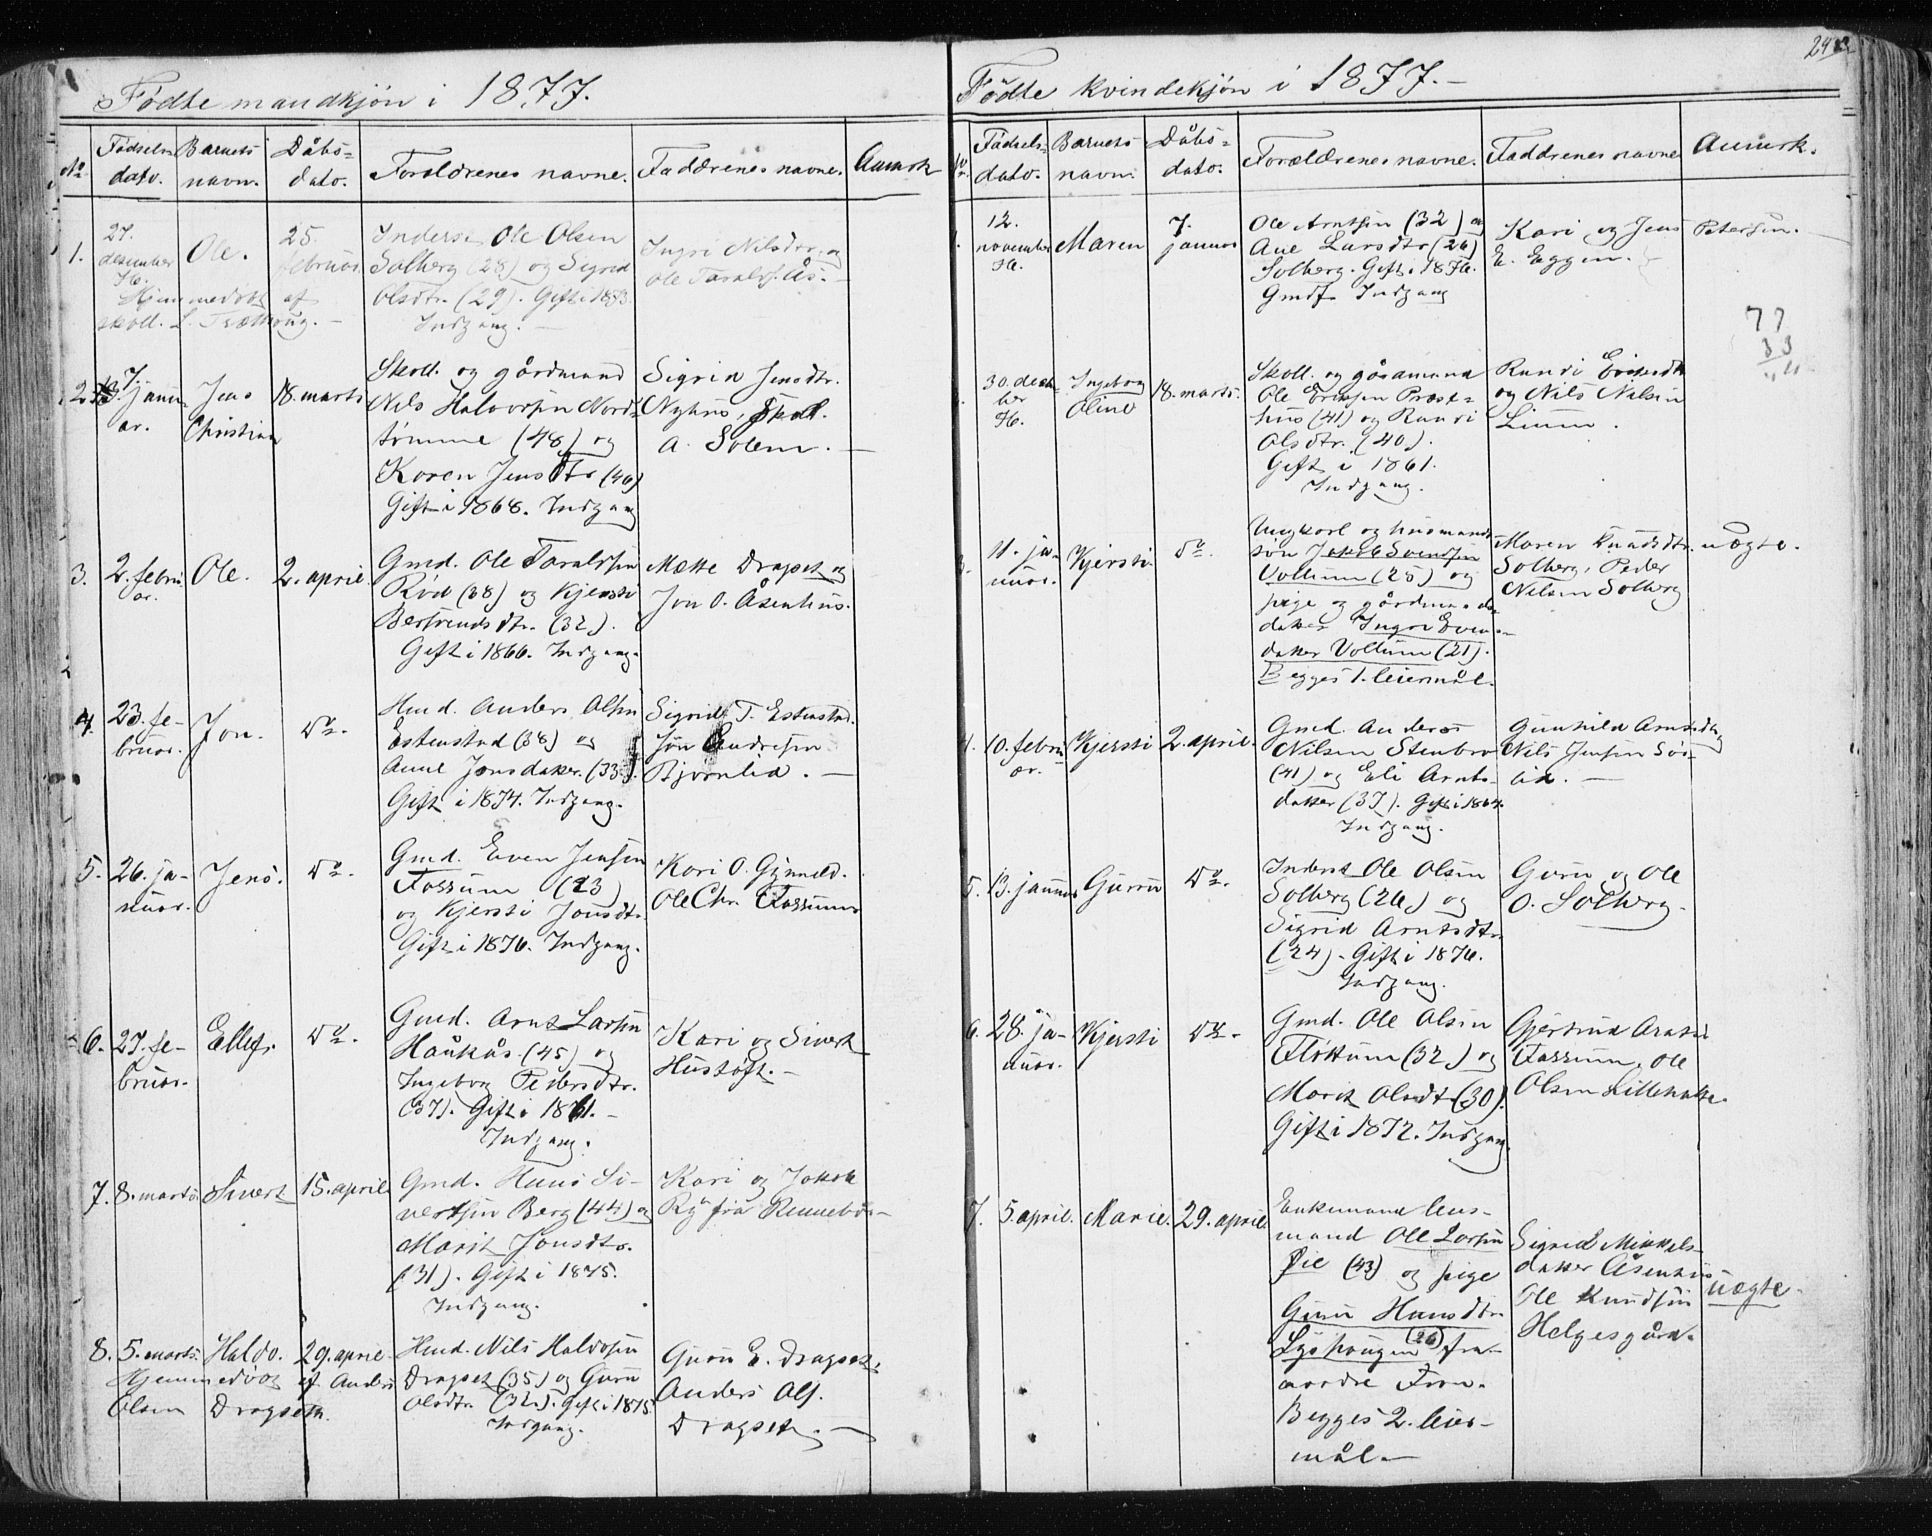 Fødte mandkjøn i 1877.
No.
Fødsels-
dato.
Barnets
navn.
Dåbs-
dato.
Forældrenes navne.
Faddrenes navne.
Anmerk
1.
27.
desember
76.
Ole.
25.
februar
Inderst Ole Olsen
Solberg (28) og Sigrid
Olsdtr. (29). Gift i 1873.
Indgang. —
Ingri Nilsdtr. og
Ole Taralds. Ås. —
Hjemmedøbt af
skoll. L. Trætteoug. —
2.
7. janu-
ar.
Jens
Christian
18. marts
Skoll. og gårdmand
Nils Halvorsen Nord-
tømme (48) og
Karen Jensdtr (46)
Gift i 1868. Indgang
Sigrid Jensdtr.
Nyhus, Skoll.
A. Solem. —
3.
2. febru
ar.
Ole.
2. april.
Gmd. Ole Taraldsen
Rød (38) og Kjersti
Bertrændsdtr. (32).
Gift i 1866. Indgang.
Mette Dragset og
Jon O. Åsenhus.
4.
23. fe-
bruar.
Jon.
Do.
Hmd. Anders Olsen
Estenstad (38) og
Anne Jonsdatter. (33).
Gift i 1874. Indgang.
Sigrid T. Estenstad.
Jon Andresen
Bjørnlid. —
5.
26. ja-
nuar.
Jens.
Do.
Gmd. Even Jensen
Fossum (23)
og Kjersti Jonsdtr.
Gift i 1876. Indgang.
Kari O. Gynneld.
Ole Chr. Fossum
6.
27. fe-
bruar.
Ellef.
Do.
Gmd. Arnt Larsen
Haukås. (45) og
Ingeborg Pedersdtr.
(37). Gift i 1871. —
Indgang.
Kari og Sivert
Hustoft. —
7.
8. marts
Sivert
15. april
Gmd. Hans Si-
vertsen Berg (44) og
Marit Jonsdtr.
(31). Gift i 1875.
Indgang.
Kari og Jakob
Ry fra Rennebo. —
8.
5. marts.
Haldo.
29. april
Hmd. Nils Haldosen
Dragset (35) og Guru
Olsdtr. (32). Gift i 1875
Indgang.
Guru E. Dragset,
Anders Ols.
Dragset. —
Hjemmedøbt af Anders
Olsen Dragseth.
Fødte kvindekjøn i 1877. —
Fødsels-
dato.
Barnets
navn.
Dåbs-
dato.
Forældrenes navne.
Faddrenes navne
Anmerk.
12.
november
76.
Maren
7.
januar
Ole Arntsen (32) og
Ane Larsdtr (26)
Solberg. Gift i 1876.
Gmdf. Indgang
Kari og Jens Petersen. —
E. Eggen. —
77
33
44
30. decem-
ber
76.
Ingeborg
Oline
18. marts.
Skoll. og gårdmand
Ole Eriksen Præst-
hus (41) og Randi
Olsdtr. (40).
Gift i 1861.
Indgang.
Randi Eriksdtr
og Nils Nilsen
Lium.
3.
11. ja-
nuar.
Kjersti
Do.
Ungkarl og husmands
søn Jakob Svendsen
Vollum (25) og
pige og gårdmands
datter Ingri Evens-
datter Vollum (21).
Begges 1. leiermål.
Maren Knudsdtr.
Solberg, Peder
Nilsen Solberg
uægte.
4.
10. febru
ar.
Kjersti
2. april.
Gmd. Anders
Nilsen Stenbro
(41) og Eli Arnts-
datter (37). Gift i 1864.
Indgang.
Gunhild Arntsdtr
Nils Jensen Sør-
lid. —
5.
13. januar
Guru
Do.
Inderst Ole Olsen
Solberg (26) og
Sigrid Arntsdtr.
(24). Gift i 1876.
Indgang.
Guru og Ole
O. Solberg.
6.
28. ja-
nuar.
Kjersti
Do.
Gmd. Ole Olsen
Fløttum (32) og
Marit Olsdtr (30).
Gift i 1872. Indgang
Gjertrud Arntsd
Fossum, Ole
Olsen Lillehalte.
7.
5. april.
Marie.
29. april
Enkemand hus-
mand Ole Larsen
Øie (43) og pige
Guru Hansdtr.
Lyshaugen (26) fra
nordre Fron.
Begges 2. leier-
mål. —
Sigrid Mikkels-
datter Åsenhus
Ole Knudsen
Helgesgård.
uægte.